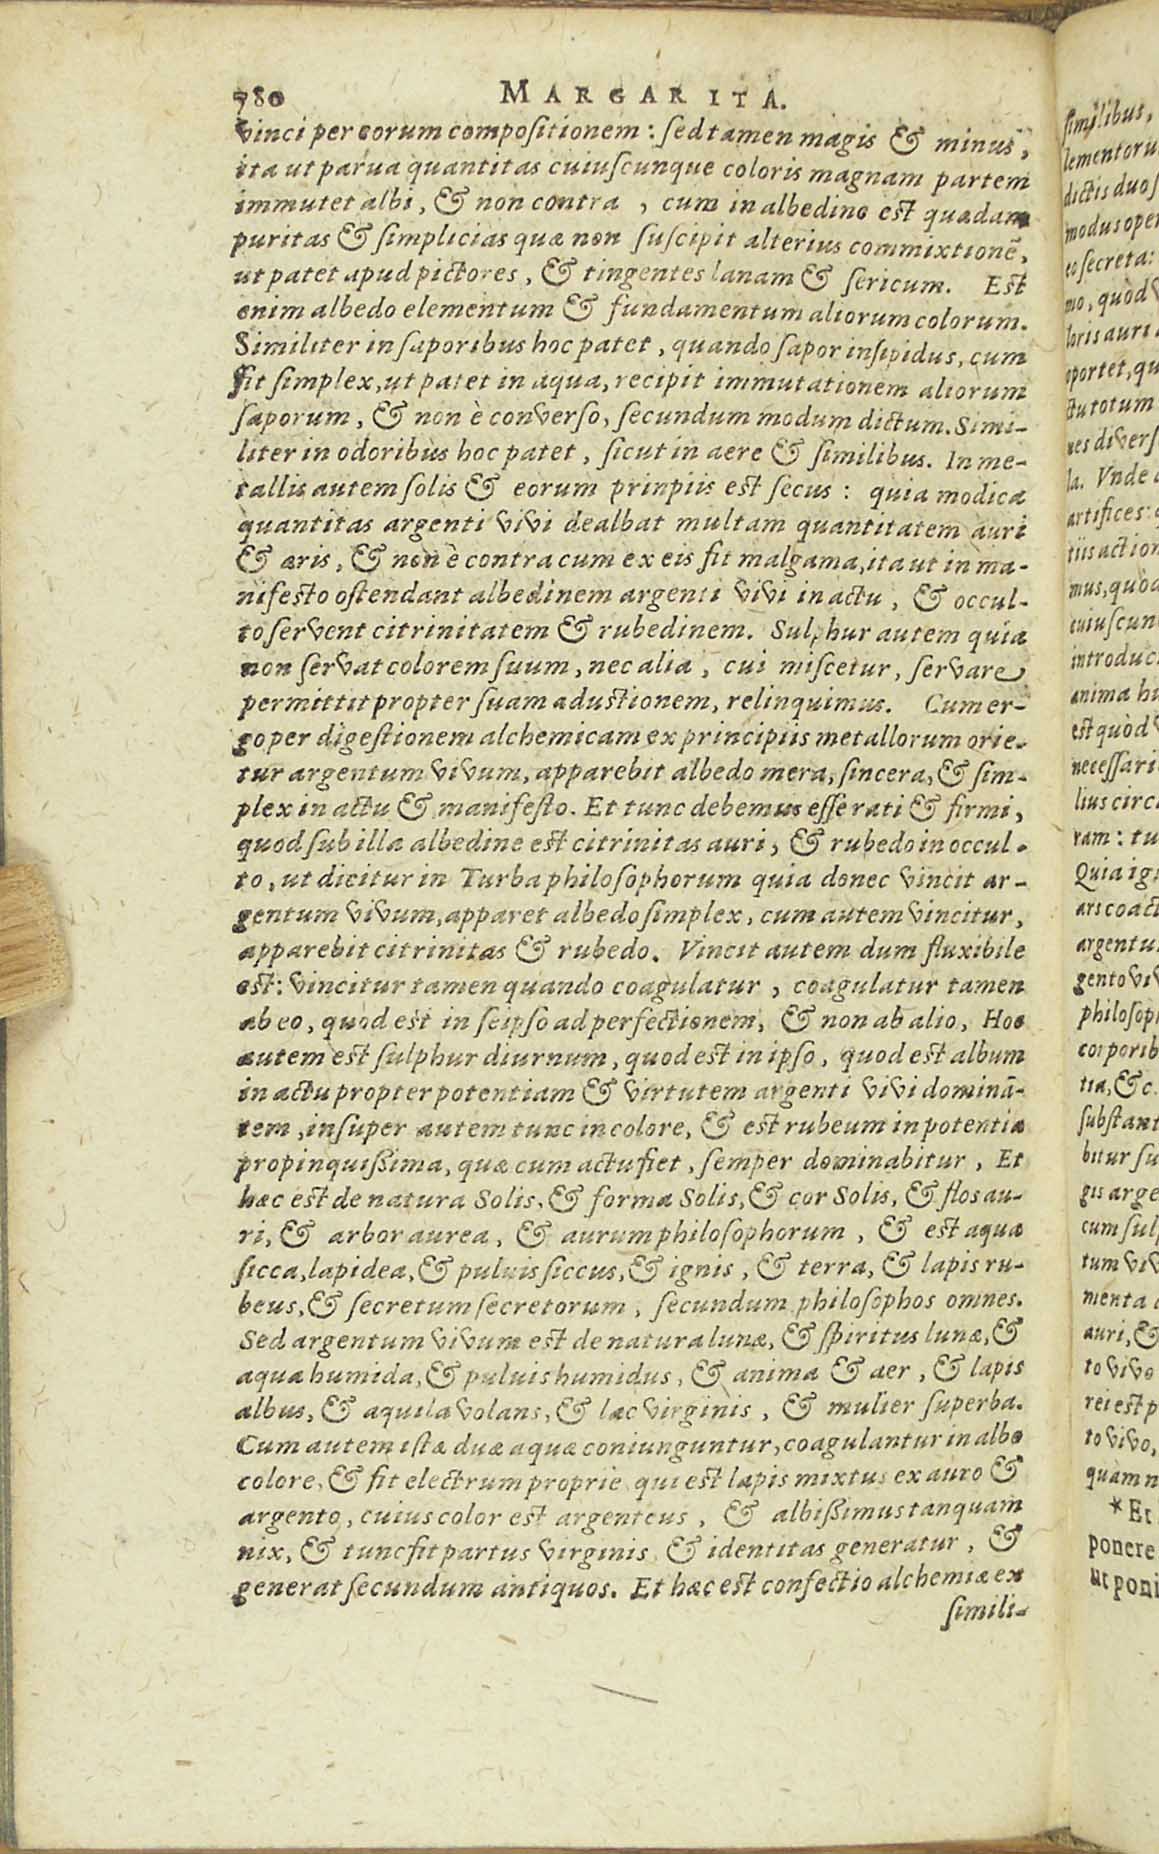 780 MARGARITA.
vinci per eorum compositionem: sed tamen magis & minus,
ita ut parva quantitas cuiuscunque coloris magnam partem
immutet albi, & non contra, cum in albedine est quædam
puritas & simplicias quæ non suscipit alterius commixtionē,
ut patet apud pictores, & tingentes lanam & sericum. Est
enim albedo elementum & fundamentum aliorum colorum.
Similiter in saporibus hoc patet, quando sapor insipidus, cum
sit simplex, ut patet in aqua, recipit immutationem aliorum
saporum, & non è converso, secundum modum dictum. Simi-
liter in odoribus hoc patet, sicut in aere & similibus. In me-
tallis autem solis & eorum prinpiis est secus: quia modica
quantitas argenti vivi dealbat multam quantitatem auri
& æris, & non è contra cum ex eis fit malgama, ita ut in ma-
nifesto ostendant albedinem argenti vivi in actu, & occul-
to servent citrinitatem & rubedinem. Sulphur autem quia
non servat colorem suum, nec alia, cui miscetur, servare
permittit propter suam adustionem, relinquimus. Cum er-
go per digestionem alchemicam ex principiis metallorum orie-
tur argentum vivum, apparebit albedo mera, sincera, & sim-
plex in actu & manifesto. Et tunc debemus esse rati & firmi,
quod sub illa albedine est citrinitas auri, & rubedo in occul-
to, ut dicitur in Turba philosophorum quia donec vincit ar-
gentum vivum, apparet albedo simplex, cum autem vincitur,
apparebit citrinitas & rubedo. Vincit autem dum fluxibile
est: vincitur tamen quando coagulatur, coagulatur tamen
ab eo, quod est in seipso ad perfectionem, & non ab alio, Hoc
autem est sulphur diurnum, quod est in ipso, quod est album
in actu propter potentiam & virtutem argenti vivi dominā-
tem, insuper autem tunc in colore, & est rubeum in potentia
propinquißima, quæ cum actu fiet, semper dominabitur, Et
hæc est de natura Solis, & forma Solis, & cor Solis, & flos au-
ri, & arbor aurea, & aurum philosophorum, & est aqua
sicca, lapidea, & puluis siccus, & ignis, & terra, & lapis ru-
beus, & secretum secretorum, secundum philosophos omnes.
Sed argentum vivum est de natura lunæ, & spiritus lunæ, &
aqua humida, & puluis humidus, & anima & aer, & lapis
albus, & aquila volans, & lac virginis, & mulier superba.
Cum autem istæ duæ aquæ coniunguntur, coagulantur in albo
colore, & fit electrum proprie qui est lapis mixtus ex auro &
argento, cuius color est argenteus, & albißimus tanquam
nix, & tunc fit partus virginis & identitas generatur, &
generat secundum antiquos. Et hæc est confectio alchemiæ ex
simili-
similibus,
lementoru
dictis duos
modus oper
eo secreta:
mo, quòd v
loris auri
oportet, qu
ctu totum
nes divers
la. Vnde
artifices
tiis action
mus, quòd
cuiuscun
introduc
anima hu
est quòd v
necessari
lius circ
ram: tu
Quia ig
ars coact
argentu
gento viv
philosoph
corporib
tia, & c
substant
bitur su
gis arge
cum sulp
tum viv
menta
auri, &
to vivo
rei est p
to vivo,
quam n
*Et
ponere
ut poni